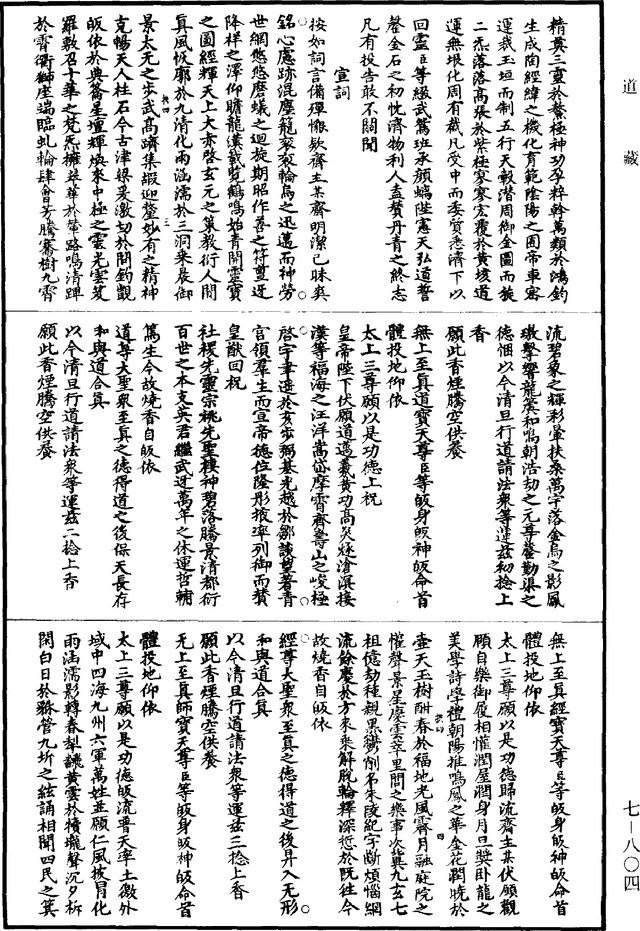 道藏
七—八〇四
精奠三靈於鰲極神功孚粹斡萬類於鴻鈞
生成陶經緯之機化育範陰陽之囿帝車密
運裁玉垣而制五行天轂潛周御金圖而旋
二炁落落高張於紫極寥寥宏覆於黃垓道
運無垠化周有截凡受中而委質悉濟下以
回靈臣等級武鵉班承顏螭陛憲天弘道誓
罄金石之初忱濟物利人盍贊丹青之終志
凡有投告敢不關聞
宣詞
按如詞言備殫悃欵齋主某齋明潔已昧爽
銘心慮跡混塵籠衮衮輪烏之迅邁而神勞
世網悠悠磨蟻之迴旋期昭作善之符亶迓
降祥之澤仰瞻龍漢載覽鶴鳴始青開靈寶
之圖經輝天上大赤啓玄元之策教衍人間
真風恢廓於九清化雨涵濡於三洞乘晨御
景太元之步武高躋集嘏迎釐妙有之精神
克暢天人柱石今古津梁爰激切於開鈞觀
皈依於典籥星壇輝煥來中極之雲光雲笈
羅敷召十華之梵炁擁翠華於輦路鳴清蹕
於霄衢獅座端臨虬輪肆會芳騰騫樹九霄
流碧象之輝彩軍扶桑萬宇落金烏之影鳳
璈擊響龍筴和鳴朝浩劫之元尊罄勤渠之
德悃以今清旦行道請法衆等運茲初捻上
香
願此香煙騰空供養
無上至真道寶天尊臣等皈身皈神皈命首
體投地仰依
太上三尊願以是功德上祝
皇帝陛下伏願道邁羲黃功高炎燧滄溟接
漢等福海之汪洋嵩岱摩霄齊壽山之峻極
啓宇肇迹於亥步弼基光越於鄒談望著青
宮領羣生而宣帝德位隆彤掖率列御而贊
皇猷回祝
社稷先靈宗祧先聖棲神碧落騰景清都衍
百世之本支英君繼武迓萬年之休運哲輔
篤生今故燒香自皈依
道尊大聖衆至真之德得道之後保天長存
和與道合真
以今清旦行道請法衆等運茲二捻上香
願此香煙騰空供養
無上至真經寶天尊臣等皈身皈神皈命首
體投地仰依
太上三尊願以是功德歸流齋主某伏願觀
願自樂御履相懽潤屋潤身月旦獎臥龍之
美學詩學禮朝陽推鳴鳳之華金花潤晥於
壺天玉樹酣春於福地光風霽月融庭院之
懽聲景星慶雲萃里閭之樂事次冀九玄七
祖億劫種親黑簿削名朱陵紀字斷煩惱網
流餘慶於方來乘解脫輪釋深愆於既往今
故燒香自皈依
經尊大聖衆至真之德得道之後昇入无形
和與道合真
以今清旦行道請法衆等運茲三捻上香
願此香煙騰空供養
无上至真師寶天尊臣等皈身皈神皈命首
體投地仰依
太上三尊願以是功德皈流普天率土徼外
域中四海九州六軍萬姓並願仁風披冒化
雨涵濡影轉春犁饒黃雲於積壠聲沉夕柝
閑白日於緐管九圻之絃誦相聞四民之箕